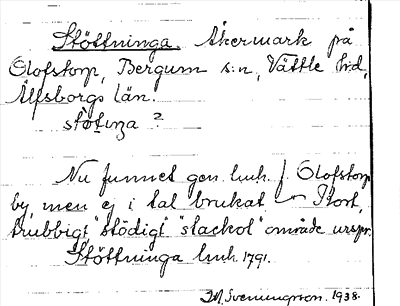 Stöttninga. Åkermark på
Olofstorp, Bergum s:n, Vättle hd,
Älfsborgs län.
stötinza ?
Nu funnet gen. luh. f. Olofstorp
by, men ej i tal brukat – Stort,
trubbigt "stödigt" "stackol" område urspr.
Stöttninga luh. 1791.
D.M. Svenungsson. 1938.